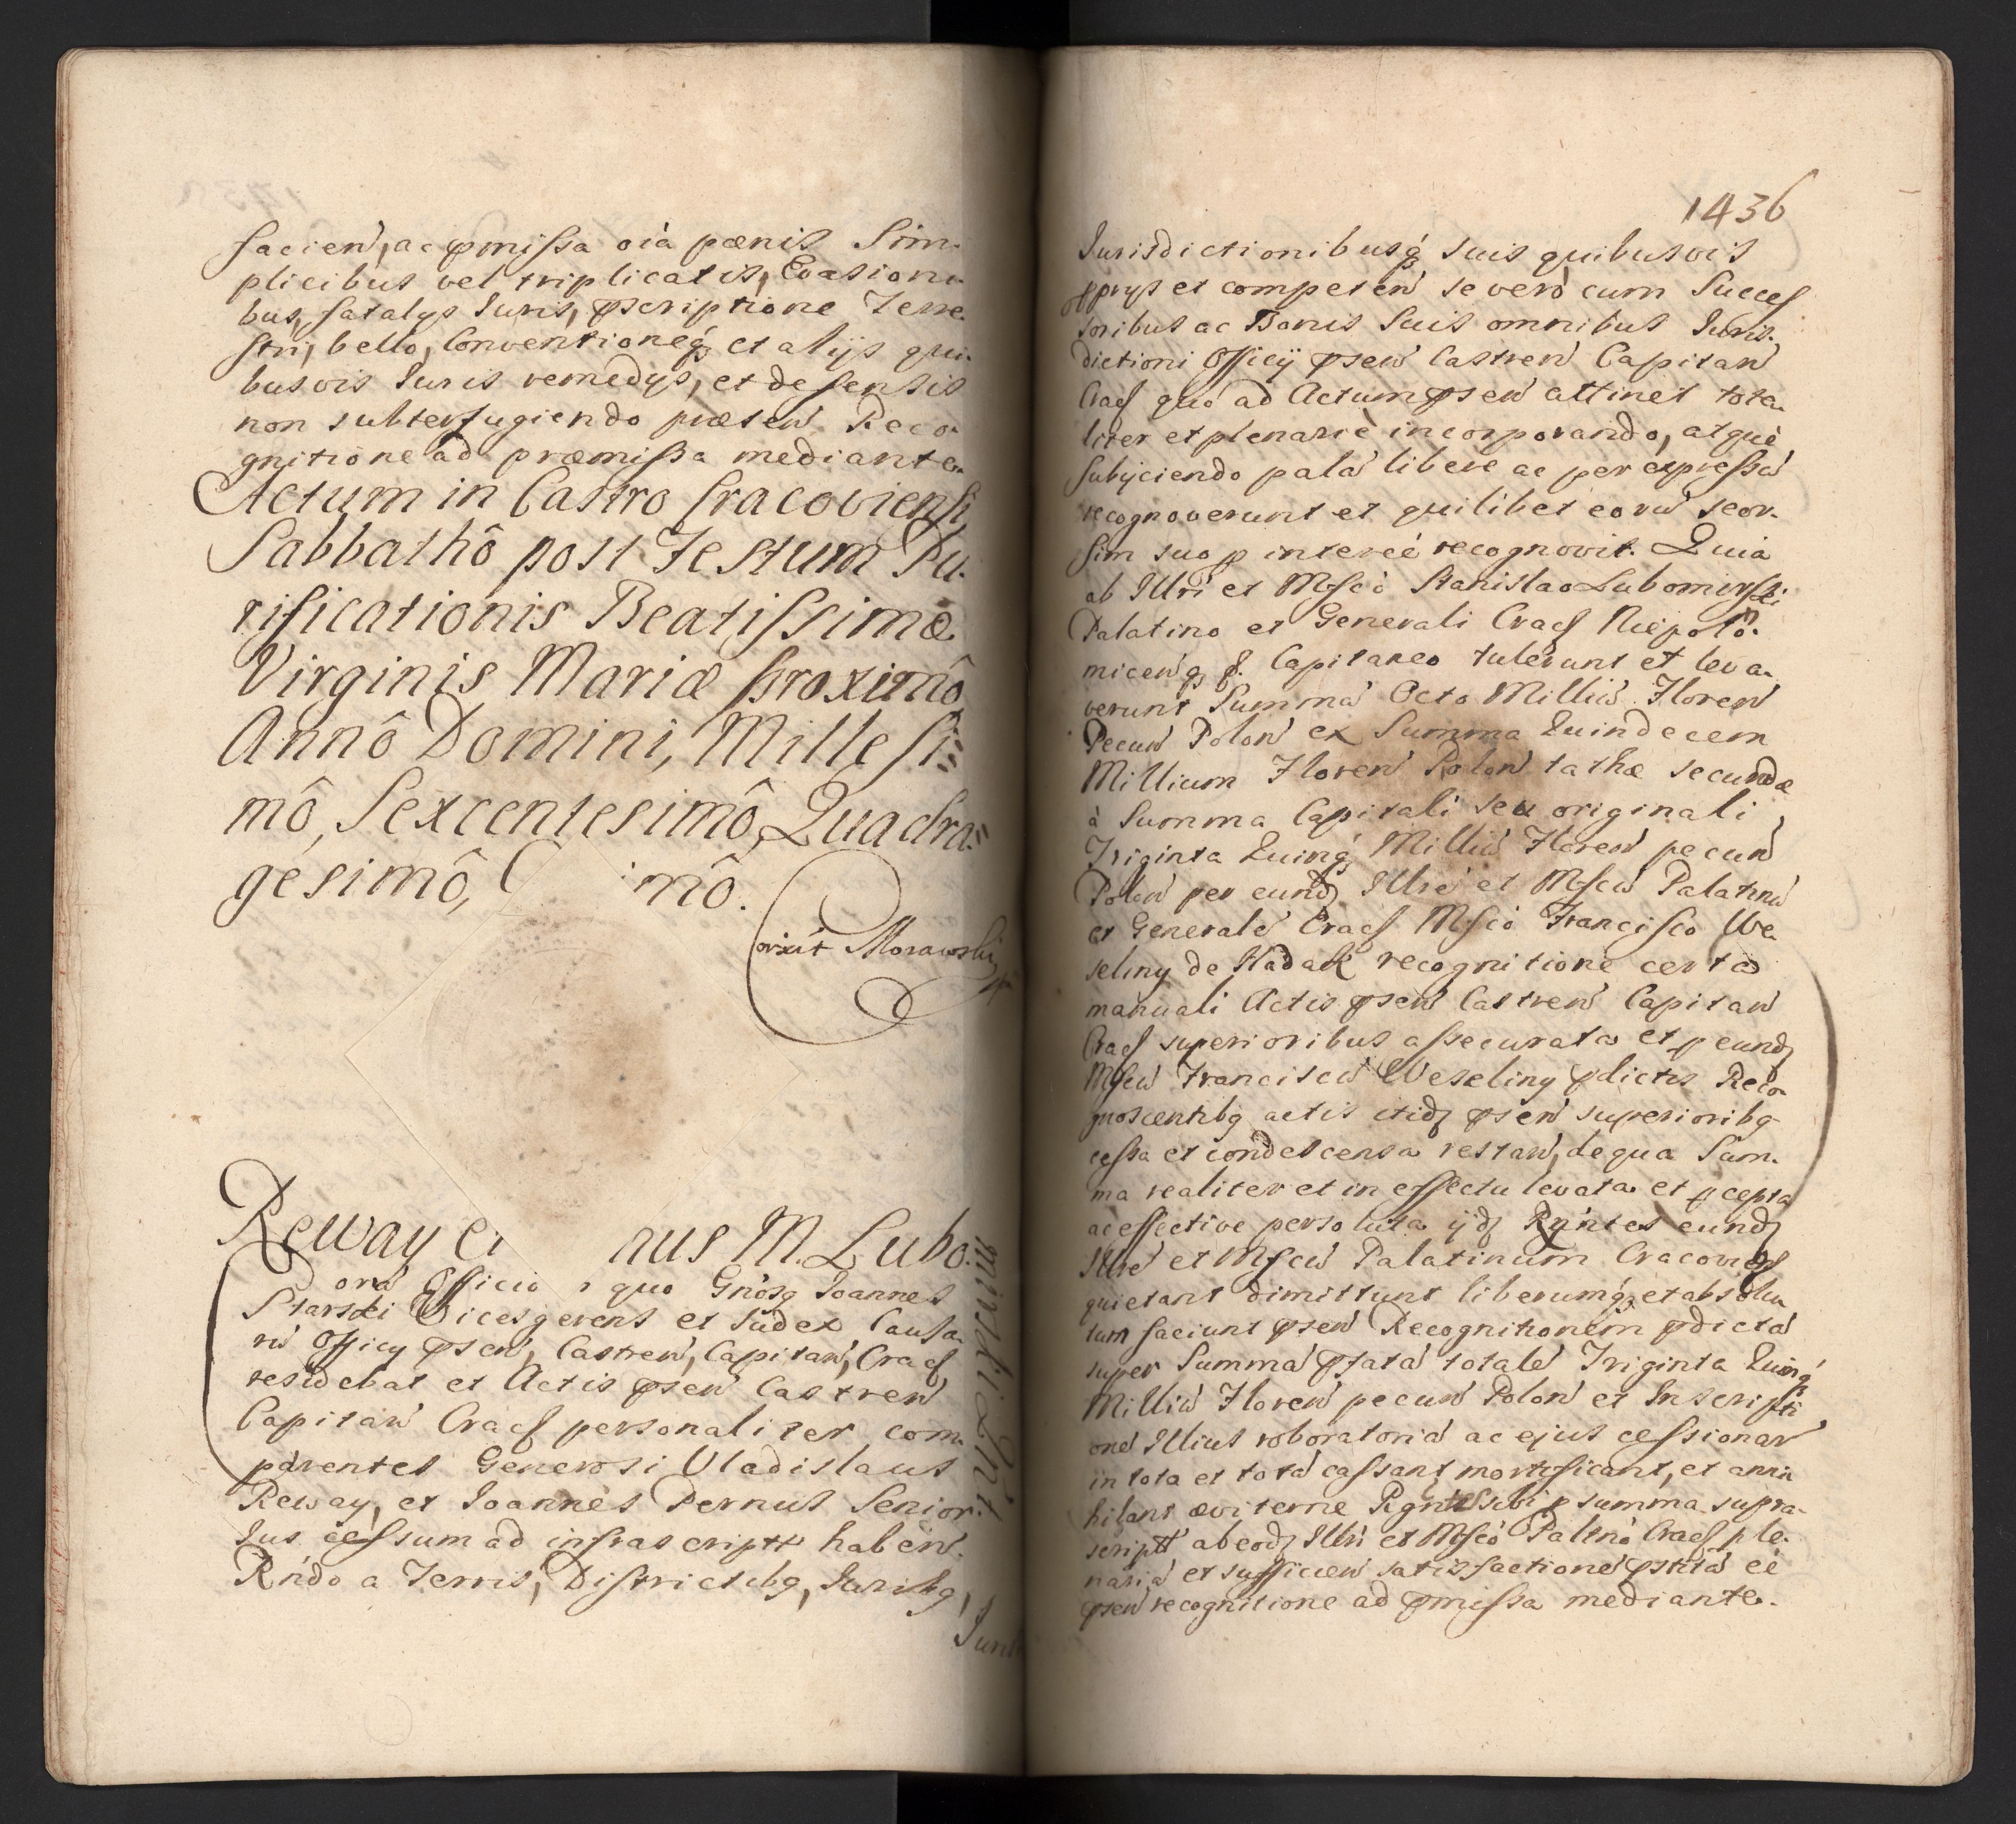 facien, ac pmissa oia pænis Sim-
plicibus vel triplicatis, Evasioni-
bus, fatalys Iuris, pscriptione Terre-
stri, bello, Conventioneq, et alijs qui-
busvis Iuris remedys, et defensis
non subterfugiendo præsen Reco-
gnitione ad præmissa mediante.
Actum in Castro Cracoviensi
Sabbathô post Festum Pu-
rificationis Beatissimæ
Virginis Mariæ proximô
Annô Domini, Millesi-
mô, Sexcentesimô Quadra-
gesimô, mô.
Morawski
Reway et nus M. Lubo-
mirski Qt
Cora Officio quo Gnosq Ioannes
Starski Vicesgerens et Iudex Causa-
ru Officy psen, Castren, Capitan, Cracs
residebat et Actis psen Castren
Capitan Cracs personaliter com-
parentes Generosi Vladislaus
Reway, et Ioannes Pernus Senior
Ius cessum ad infrascriptt haben.
Rndo a Terris, Districtibq, Iuribq,
Iuris
1436
Iurisdictionibusq suis quibusvis
pprys et competen se vero cum Succes
soribus ac Bonis Suis omnibus Iuris-
dictioni Officij psen Castren Capitan
Cracs quo ad Actum psen attinet tota-
liter et plenarie incorporando, atque
Subijciendo pala libere ac per expressu
recognoverunt et quilibet eoru seor-
sim suo p interee recognovit. Quia
ab Illri et Mfco Stanislao Lubomirski
Palatino et Generali Cracs Niepolo-
micenq &. Capitaneo tulerunt et leva-
verunt Summa Octo Milliu Floren
Pecun Polon ex Summa Quindecem
Millium Floren Polon tathæ secundæ
à Summa Capitali seu originali
Triginta Quinq Milliu Floren pecun
Polon per eund Illre et Mfcu Palatinu
et Generale Cracs Mfco Francisco We-
seliny de Hadak recognitione certa
manuali Actis psen Castren Capitan
Cracs superioribus assecurata et p eund
Mfcu Franciscu Weseliny pdictis Reco-
gnoscentibq actis itid psen superioribq
cessa et condescensa restan, de qua Sum-
ma realiter et in effectu levata et pcepta
ac effective persoluta ijd Rgntes eund
Illre et Mfcu Palatinum Cracovies
quietant dimittunt liberumq et absolu
tum faciunt psen Recognitionem pdicta
super Summa pfata totale Triginta Quinq
Milliu Floren pecun Polon et Inscripti
one Illius roboratoria ac ejus cessionar
in tota et tota cassant mortificant, et anni
hilant æviterne Rgntes sibi p summa supra-
scriptt ab eod Illri et Mfco Paltno Cracs ple-
naria et sufficien satisfactione pstita ee
psen recognitione ad pmissa mediante.